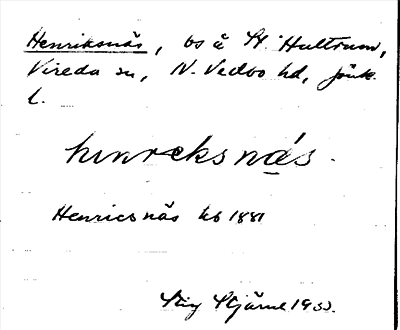 Henriksnäs, bs å St. Hultrum,
Vireda sn, N. Vedbo hd, Jönk.
l.
hınreksnä́s.
Henricsnäs kb 1881
Stig Stjärne 1933.